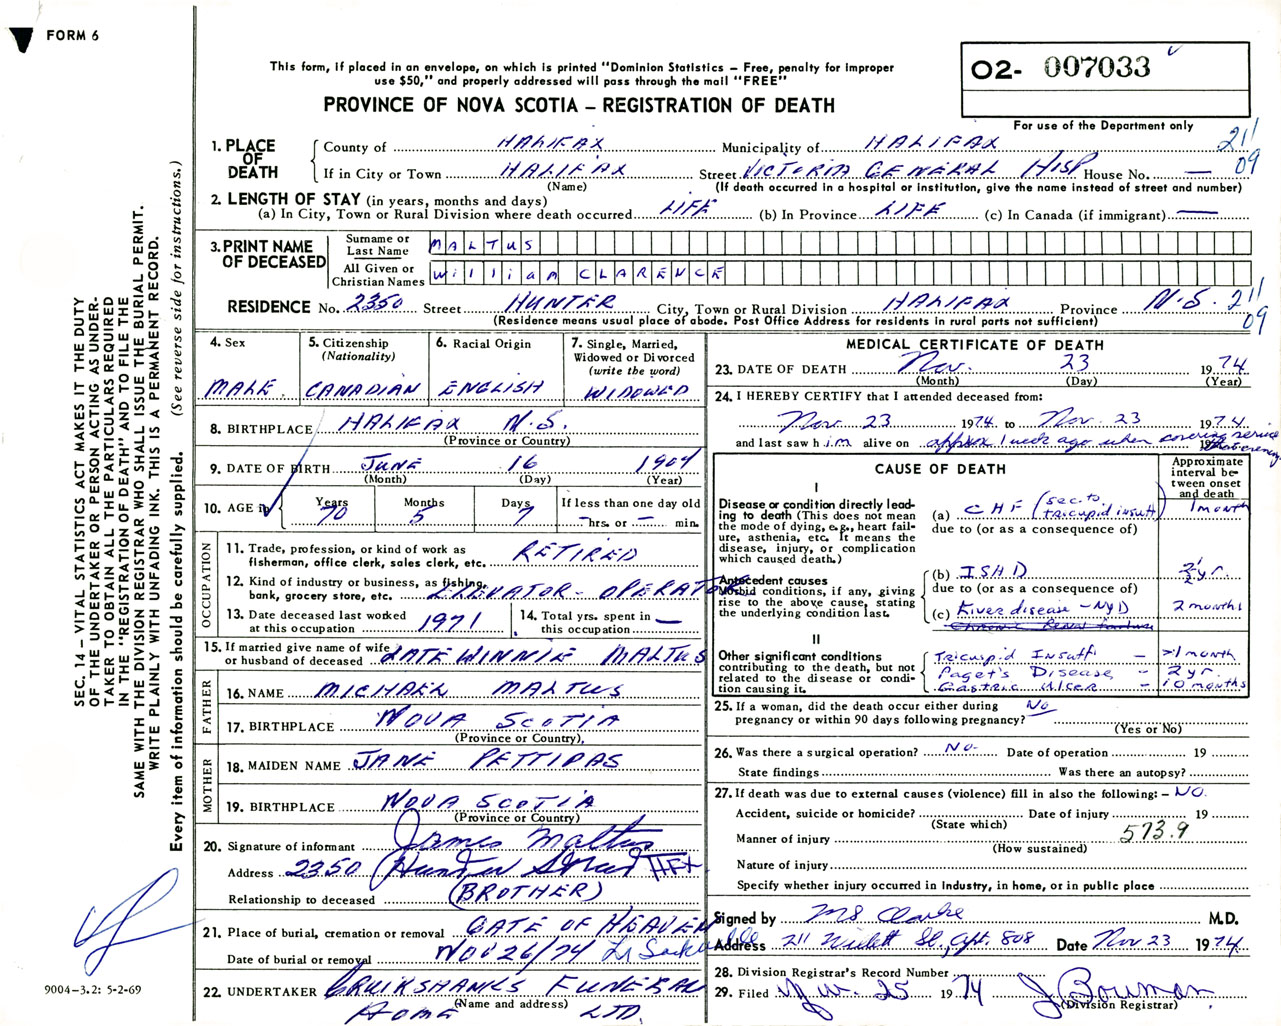 FORM 6
This form, if placed in an envelope, on which is printed "Dominion Statistics – Free, penalty for improper
use $50," and properly addressed will pass through the mail "FREE"
PROVINCE OF NOVA SCOTIA – REGISTRATION OF DEATH
O2- 007033
For use of the Department only
1. PLACE OF DEATH
County of HALIFAX Municipality of HALIFAX 211
If in City or Town HALIFAX Street VICTORIA GENERAL HOSP House No. — 09
(Name) (If death occurred in a hospital or institution, give the name instead of street and number)
2. LENGTH OF STAY (in years, months and days)
(a) In City, Town or Rural Division where death occurred LIFE (b) In Province LIFE (c) In Canada (if immigrant) —
3. PRINT NAME OF DECEASED
Surname or Last Name MALTUS
All Given or Christian Names William CLARENCE
RESIDENCE No. 2350 Street HUNTER City, Town or Rural Division HALIFAX Province N.S. 211
(Residence means usual place of abode. Post Office Address for residents in rural parts not sufficient) 09
4. Sex MALE.
5. Citizenship (Nationality) CANADIAN
6. Racial Origin ENGLISH
7. Single, Married, Widowed or Divorced (write the word) WIDOWED
8. BIRTHPLACE HALIFAX N.S.
(Province or Country)
9. DATE OF BIRTH JUNE 16 1904
(Month) (Day) (Year)
10. AGE in Years 70 Months 5 Days 7 If less than one day old — hrs. or — min.
OCCUPATION
11. Trade, profession, or kind of work as fisherman, office clerk, sales clerk, etc. RETIRED
12. Kind of industry or business, as fishing, bank, grocery store, etc. ELEVATOR-OPERATOR
13. Date deceased last worked at this occupation 1971
14. Total yrs. spent in this occupation —
15. If married give name of wife or husband of deceased LATE WINNIE MALTUS
FATHER
16. NAME MICHAEL MALTUS
17. BIRTHPLACE NOVA SCOTIA
(Province or Country),
MOTHER
18. MAIDEN NAME JANE PETTIPAS
19. BIRTHPLACE NOVA SCOTIA
(Province or Country)
20. Signature of informant James Maltus
Address 2350 Hunter Street HFX
Relationship to deceased (BROTHER)
21. Place of burial, cremation or removal GATE OF HEAVEN
Date of burial or removal NOV 26/74 Lr Sackville
22. UNDERTAKER CRUIKSHANKS FUNERAL
(Name and address)
HOME LTD.
MEDICAL CERTIFICATE OF DEATH
23. DATE OF DEATH Nov. 23 1974
(Month) (Day) (Year)
24. I HEREBY CERTIFY that I attended deceased from:
Nov 23 1974 to Nov. 23 1974
and last saw him alive on approx 1 week ago when covering service 19
CAUSE OF DEATH
Approximate interval between onset and death
I
Disease or condition directly leading to death (This does not mean the mode of dying, e.g., heart failure, asthenia, etc. It means the disease, injury, or complication which caused death.)
(a) CHF (sec. to tricuspid insuff) 1 month
due to (or as a consequence of)
Antecedent causes
Morbid conditions, if any, giving rise to the above cause, stating the underlying condition last.
(b) ISHD 2½ yr.
due to (or as a consequence of)
(c) Liver disease – NYD 2 months
Chronic Renal
II
Other significant conditions contributing to the death, but not related to the disease or condition causing it.
Tricuspid Insuff – >1 month
Paget's Disease – 2 yr.
Gastric Ulcer – 10 months
25. If a woman, did the death occur either during pregnancy or within 90 days following pregnancy? No
(Yes or No)
26. Was there a surgical operation? No. Date of operation 19
State findings Was there an autopsy?
27. If death was due to external causes (violence) fill in also the following: – NO.
Accident, suicide or homicide? Date of injury 19
(State which)
Manner of injury 573.9
(How sustained)
Nature of injury
Specify whether injury occurred in Industry, in home, or in public place
Signed by MS Clarke M.D.
Address 211 St., Apt. 808 Date Nov 23 1974
28. Division Registrar's Record Number
29. Filed 25 1974 J Bowman
(Division Registrar)
SEC. 14 – VITAL STATISTICS ACT MAKES IT THE DUTY
OF THE UNDERTAKER OR PERSON ACTING AS UNDER-
TAKER TO OBTAIN ALL THE PARTICULARS REQUIRED
IN THE "REGISTRATION OF DEATH" AND TO FILE THE
SAME WITH THE DIVISION REGISTRAR WHO SHALL ISSUE THE BURIAL PERMIT.
WRITE PLAINLY WITH UNFADING INK. THIS IS A PERMANENT RECORD.
Every item of information should be carefully supplied. (See reverse side for instructions.)
9004-3.2: 5-2-69